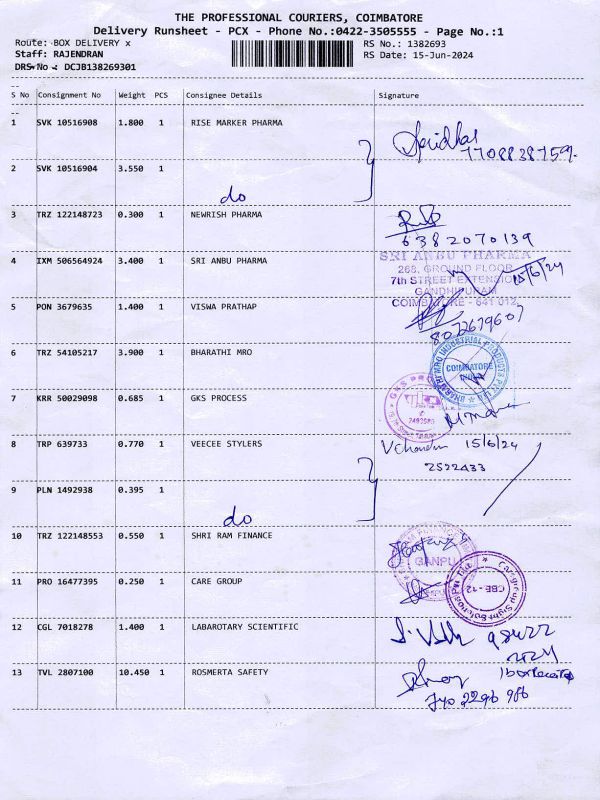 THE PROFESSIONAL COURIERS, COIMBATORE
Delivery Runsheet - PCX - Phone No.:0422-3505555 - Page No.:1
Route: BOX DELIVERY x RS No.: 1382693
Staff: RAJENDRAN RS Date: 15-Jun-2024
DRS No : DCJB138269301
S No Consignment No Weight PCS Consignee Details Signature
1 SVK 10516908 1.800 1 RISE MARKER PHARMA
2 SVK 10516904 3.550 1
do
3 TRZ 122148723 0.300 1 NEWRISH PHARMA
6382070139
4 IXM 506564924 3.400 1 SRI ANBU PHARMA
SRI ANBU PHARMA
268, GROUND FLOOR
7th STREET EXTENSION
GANDHIPURAM
COIMBATORE - 641 012
15/6/24
5 PON 3679635 1.400 1 VISWA PRATHAP
6 TRZ 54105217 3.900 1 BHARATHI MRO
COIMBATORE
7 KRR 50029098 0.685 1 GKS PROCESS
8 TRP 639733 0.770 1 VEECEE STYLERS
15/6/24
2522433
9 PLN 1492938 0.395 1
do
10 TRZ 122148553 0.550 1 SHRI RAM FINANCE
11 PRO 16477395 0.250 1 CARE GROUP
CBE-12
12 CGL 7018278 1.400 1 LABAROTARY SCIENTIFIC
13 TVL 2807100 10.450 1 ROSMERTA SAFETY